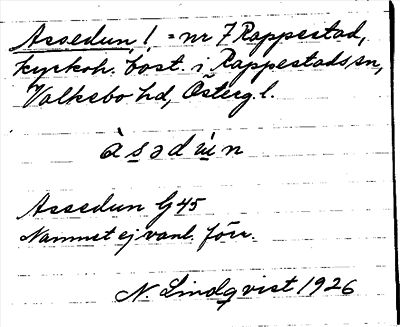 Assedun, ! = nr 7 Rappestad,
kyrkoh. bost. i Rappestads sn,
Valkebo hd, Östergl.
àsədùn
Assedun G 45
Namnet ej vanl. förr.
N. Lindqvist 1926